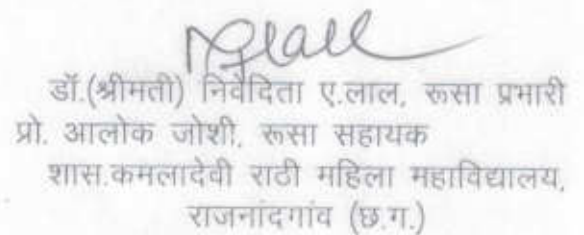 डॉ.(श्रीमती) निवेदिता ए.लाल, रूसा प्रभारी
प्रो. आलोक जोशी, रूसा सहायक
शास.कमलादेवी राठी महिला महाविद्यालय,
राजनांदगांव (छ.ग.)